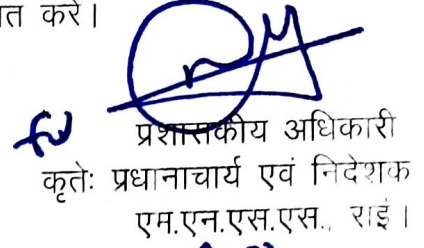 त करे।
प्रशासकीय अधिकारी
कृतेः प्रधानाचार्य एवं निदेशक
एम.एन.एस.एस., राई।